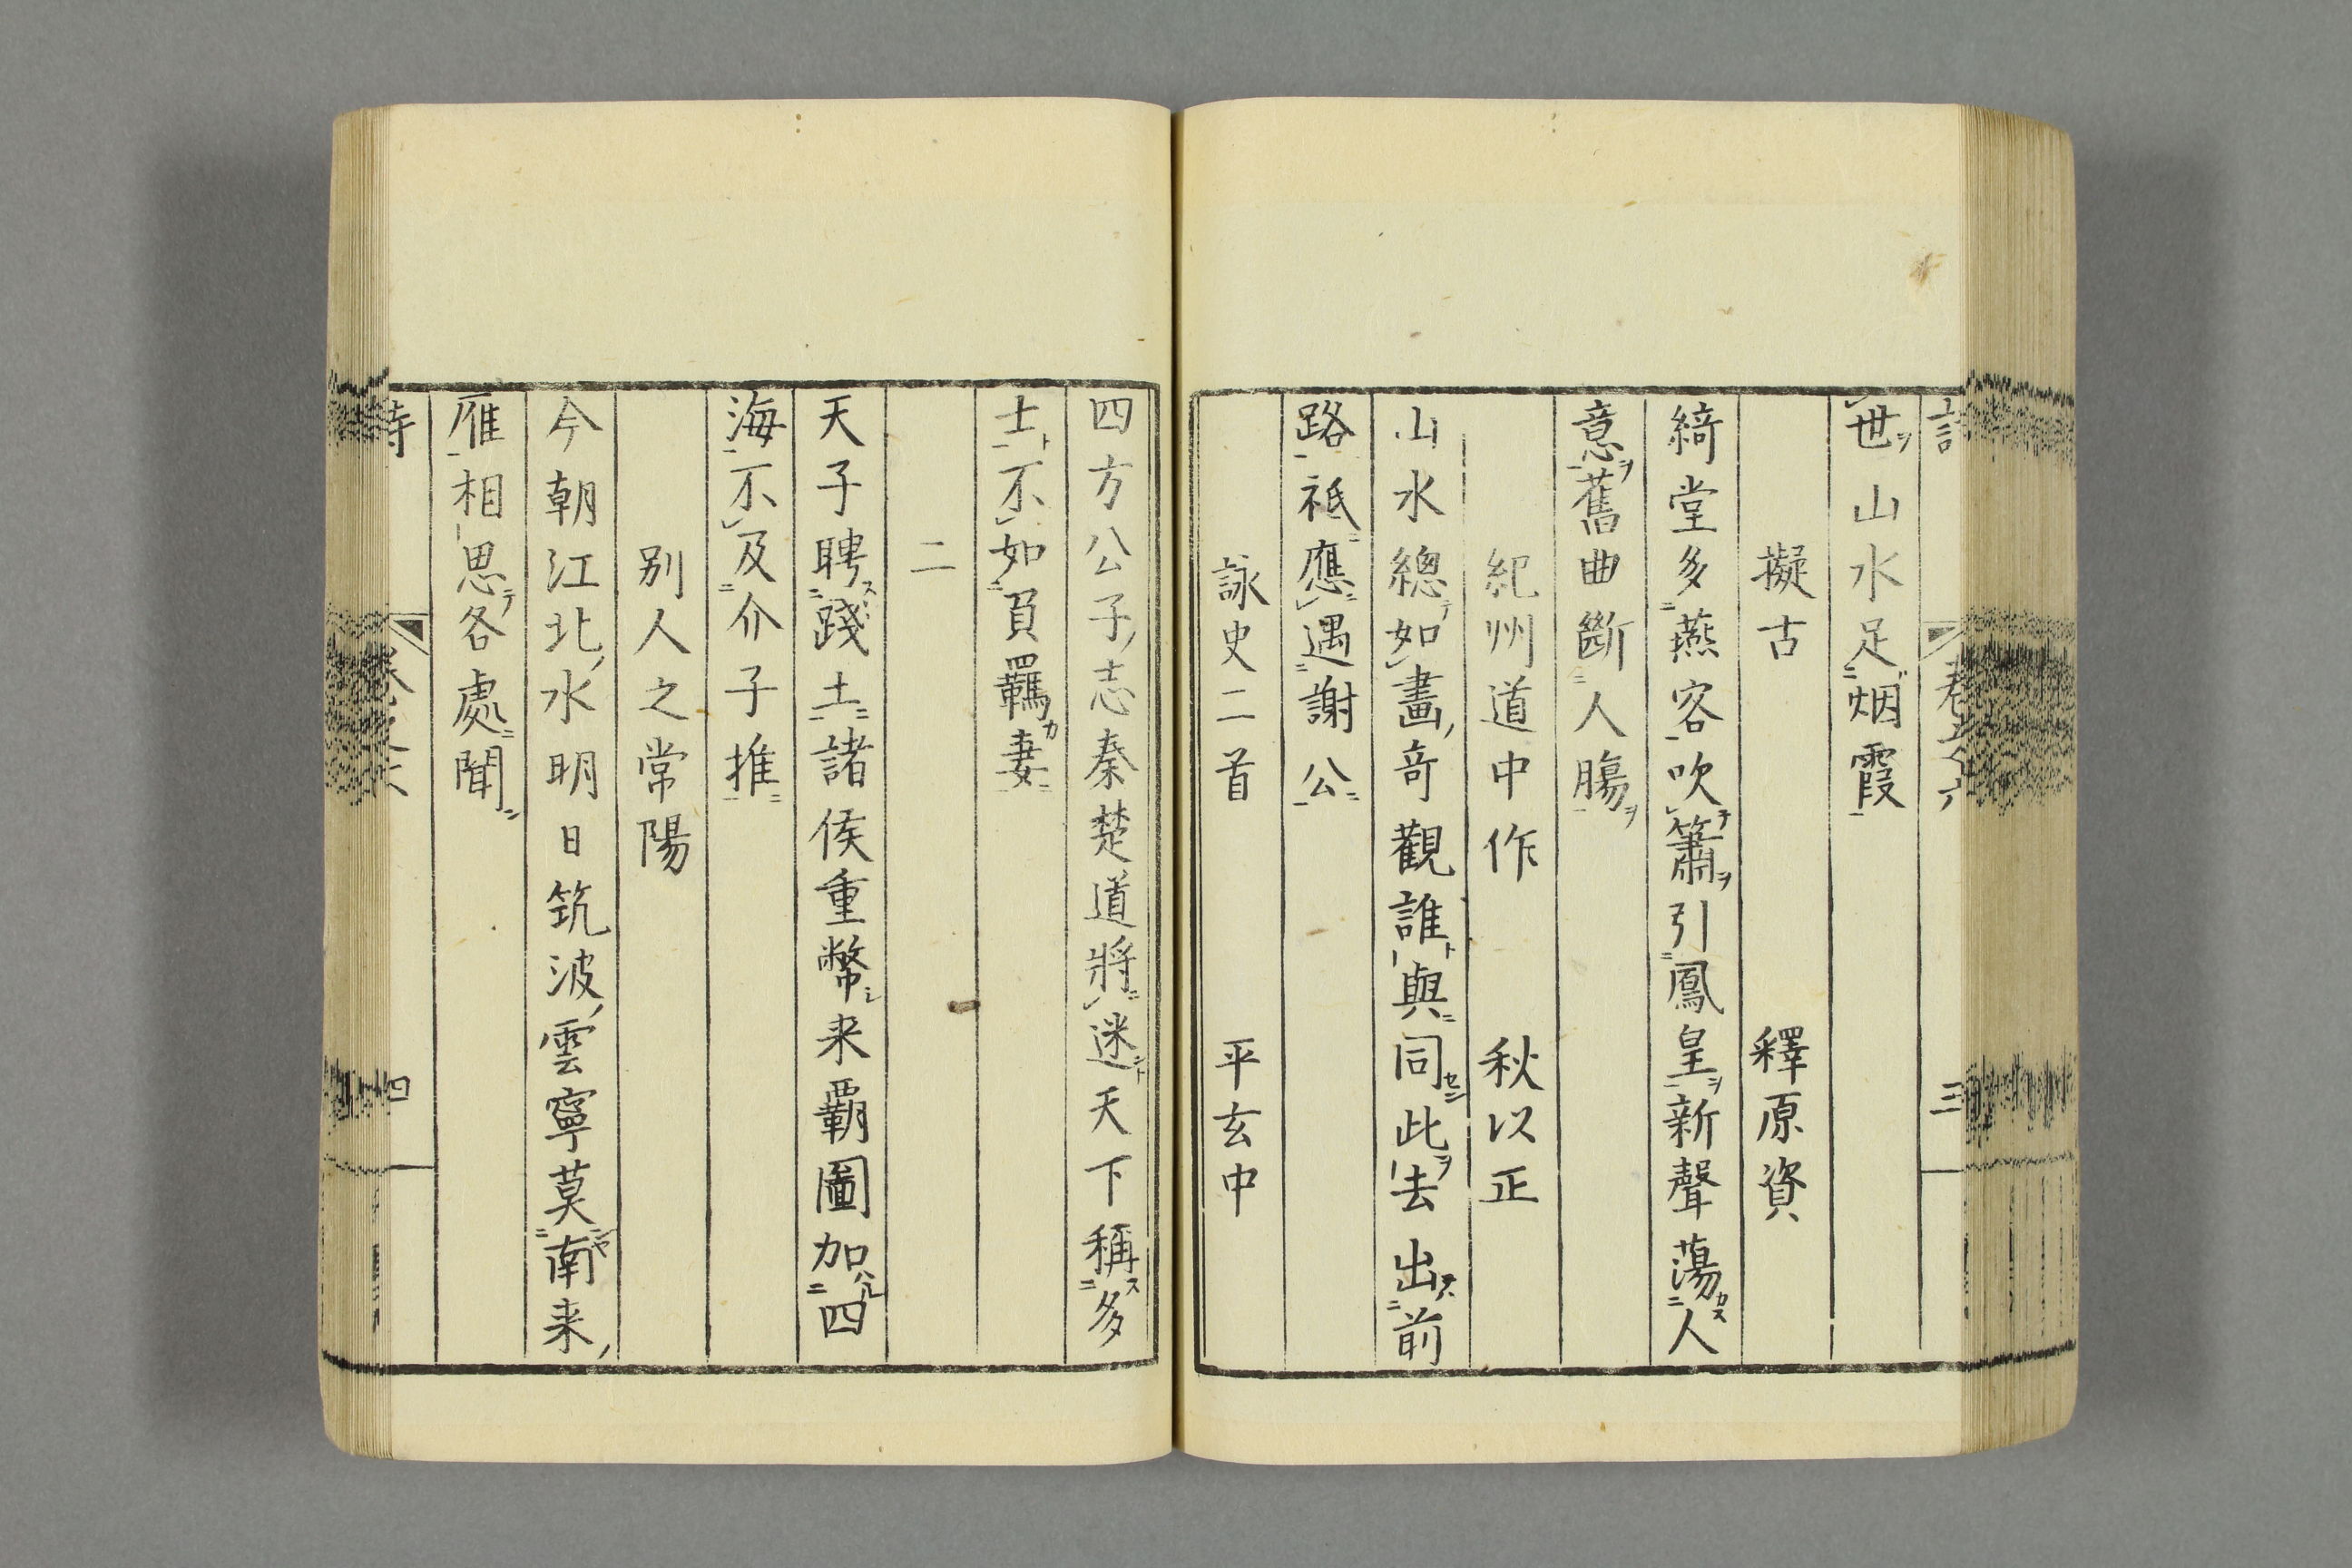 三
世山水足烟霞
擬古 釋原資
綺堂多燕客吹簫引鳳皇新聲蕩人
意舊曲斷人腸
紀州道中作 秋以正
山水總如畫奇觀誰與同此去出前
路祗應遇謝公
詠史二首 平玄中
四方公子志秦楚道將迷天下稱多
士不如負羈妻
二
天子聘踐土諸侯重幣来覇圖加四
海不及介子推
别人之常陽
今朝江北水明日筑波雲寧莫南来
雁相思各處聞
四